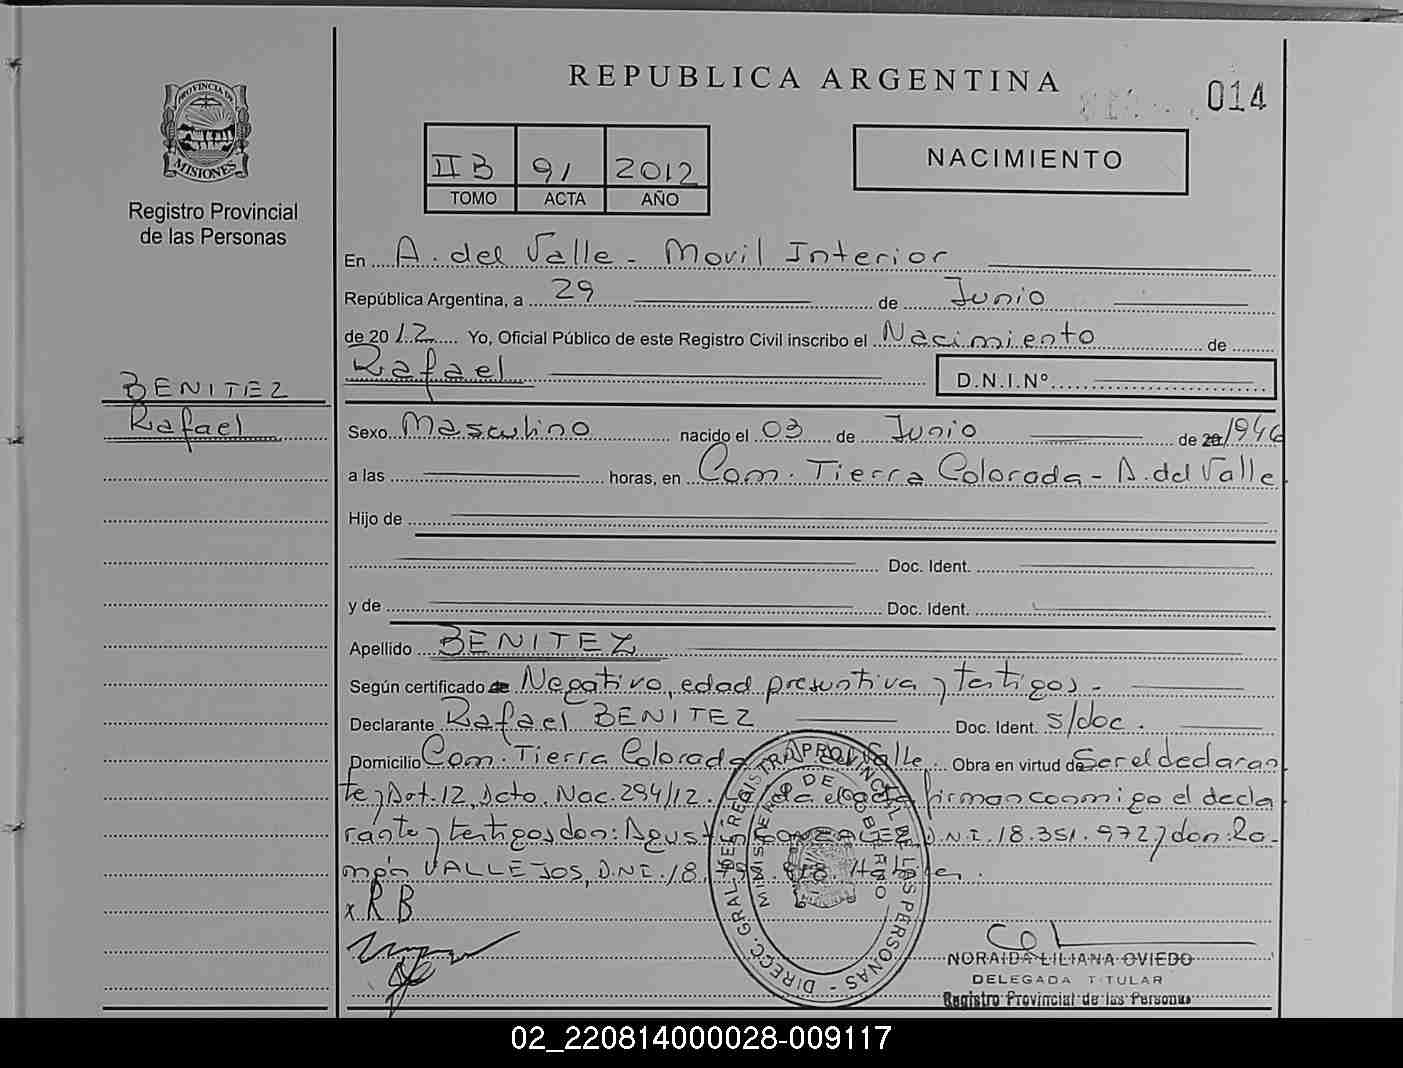 REPUBLICA ARGENTINA
014
PROVINCIA DE
MISIONES
Registro Provincial
de las Personas
II B 91 2012
TOMO ACTA AÑO
NACIMIENTO
En A. del Valle - Movil Interior
República Argentina, a 29 de Junio
de 2012 Yo, Oficial Público de este Registro Civil inscribo el Nacimiento de
Rafael D.N.I.Nº
BENITEZ
Rafael
Sexo Masculino nacido el 03 de Junio de 1946
a las horas, en Com. Tierra Colorada - A. del Valle
Hijo de
Doc. Ident.
y de Doc. Ident.
Apellido BENITEZ
Según certificado de Negativo, edad presuntiva y testigos -
Declarante Rafael BENITEZ Doc. Ident. s/doc.
Domicilio Com. Tierra Colorada Valle. Obra en virtud de Ser el declaran
te y Art. 12, Dcto. Nac. 294/12. firman conmigo el decla
rante y testigos don: Agust D.N.I. 18.351.972 y don: Ra-
món VALLEJOS, D.N.I. 18.
x R B
DIRECC. GRAL. DEL REGISTRO PROVINCIAL DE LAS PERSONAS -
MINISTERIO DE GOBIERNO
NORAIDA LILIANA OVIEDO
DELEGADA TITULAR
Registro Provincial de las Personas
02_220814000028-009117